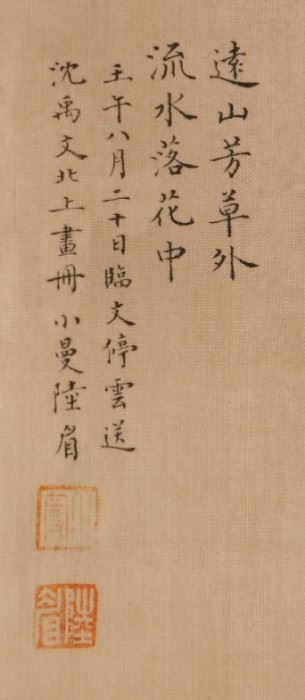 遠山芳草外
流水落花中
壬午八月二十日臨文停雲送
沈禹文北上畫冊小曼陸眉
陸眉